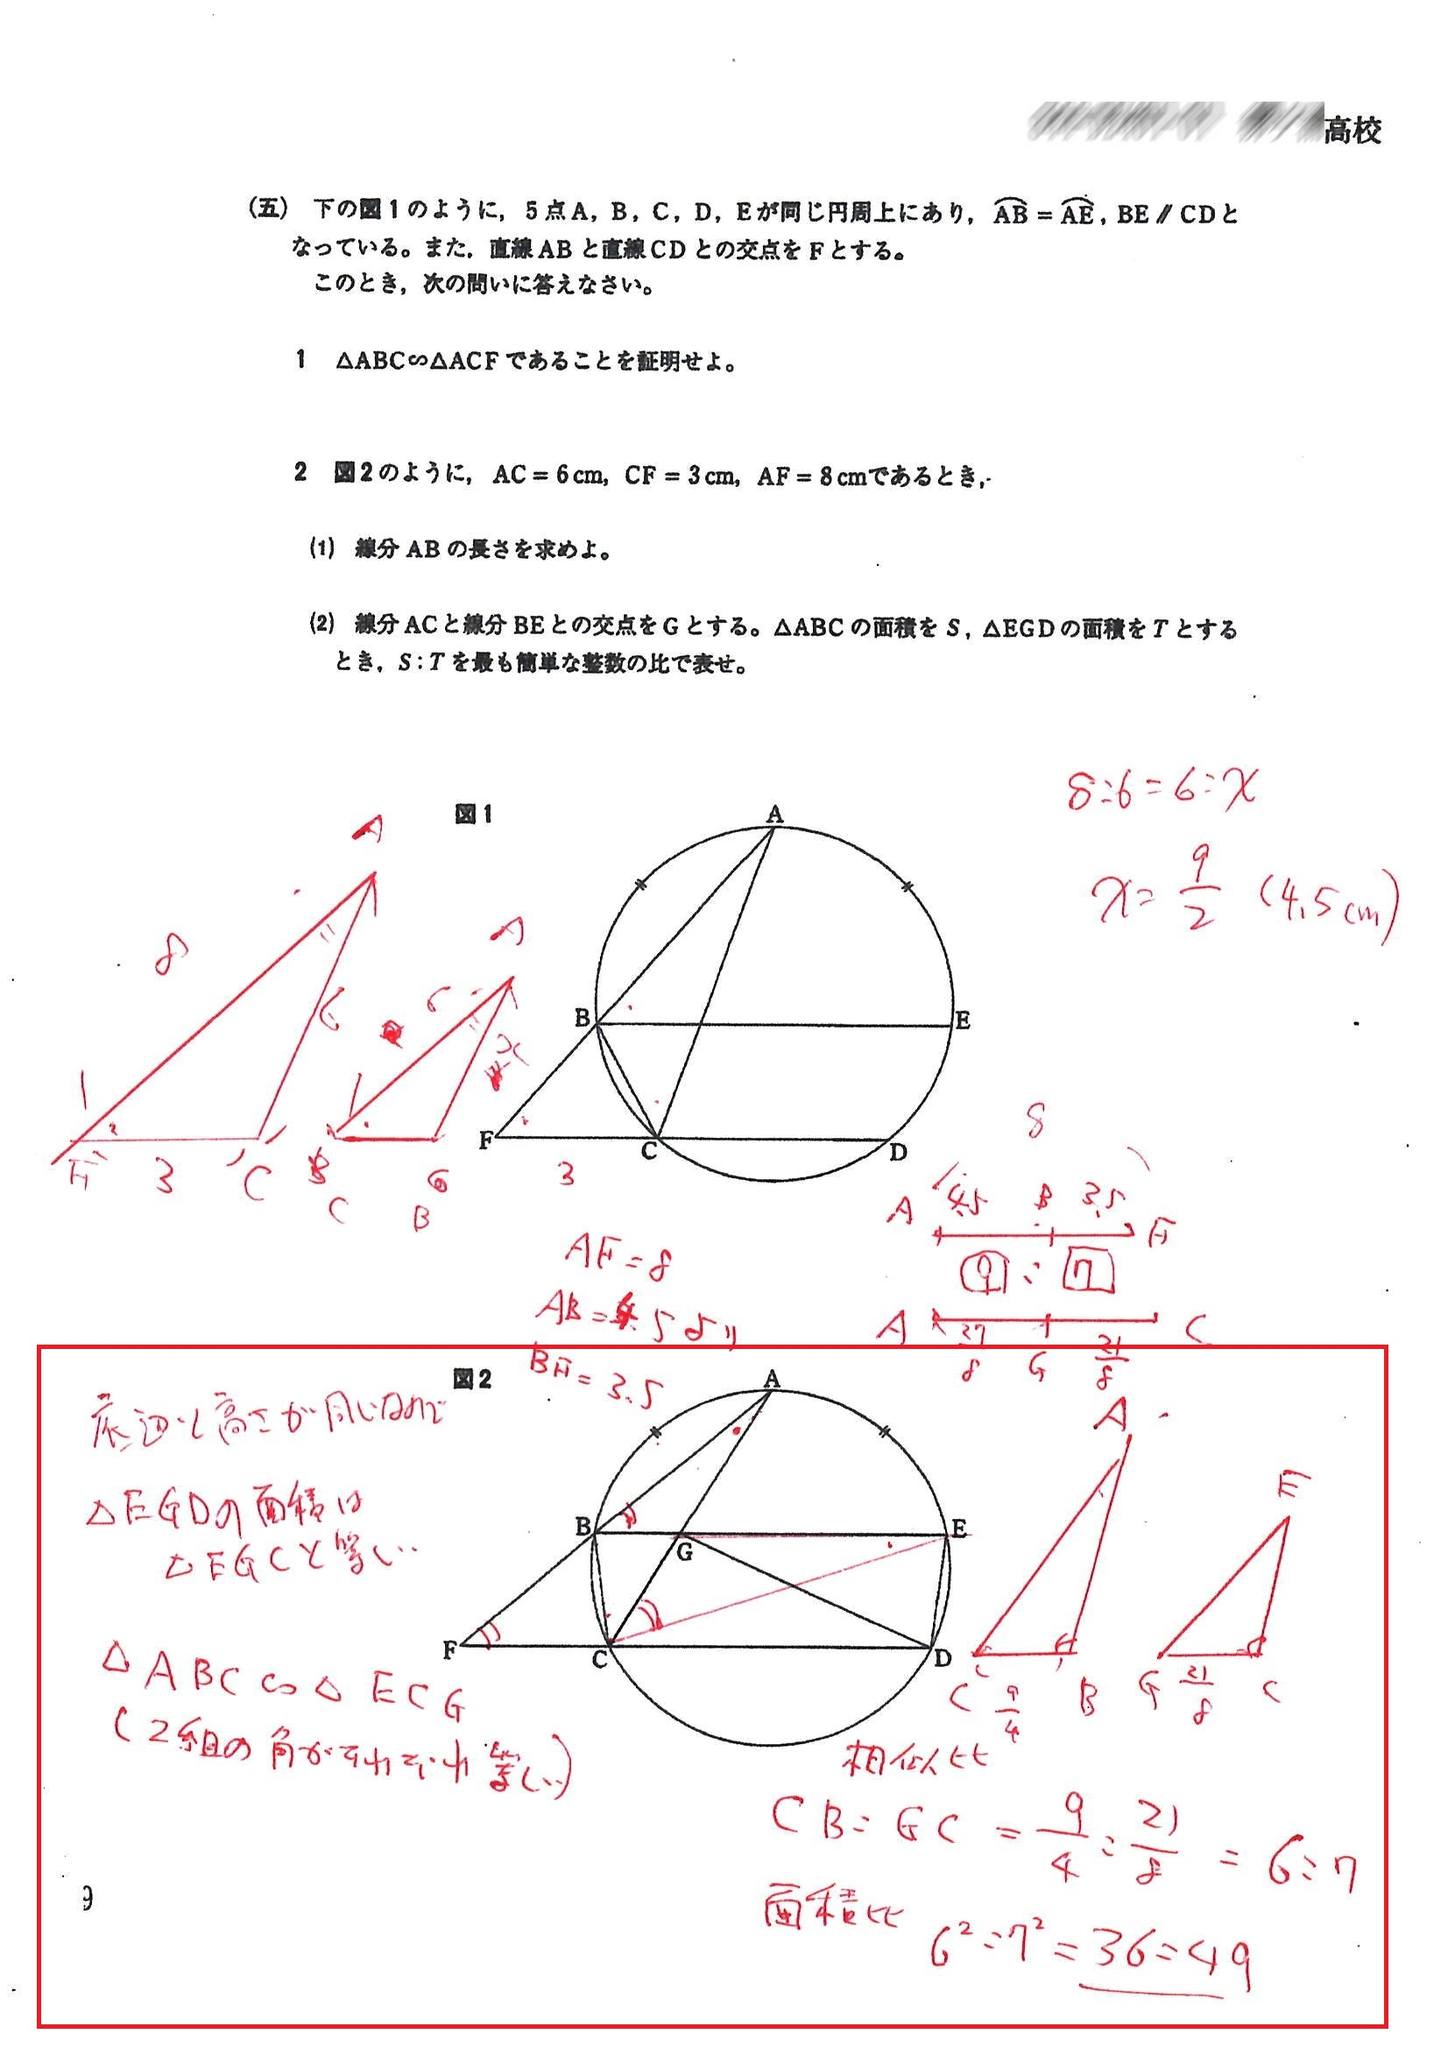 高校
(五) 下の図1のように，5点A，B，C，D，Eが同じ円周上にあり，AB＝AE，BE∥CDと
なっている。また，直線ABと直線CDとの交点をFとする。
このとき，次の問いに答えなさい。
1 △ABC∽△ACFであることを証明せよ。
2 図2のように，AC＝6cm，CF＝3cm，AF＝8cmであるとき，
(1) 線分ABの長さを求めよ。
(2) 線分ACと線分BEとの交点をGとする。△ABCの面積をS，△EGDの面積をTとする
とき，S：Tを最も簡単な整数の比で表せ。
8:6=6:x
x=9/2 (4.5cm)
図1
A
B
E
F
C
D
A
8
6
F
3
C
A
6
x
C
B
3
8
A 4.5 B 3.5 F
9:7
A 27/8 G 21/8 C
AF=8
AB=4.5より
BF=3.5
図2
A
B
G
E
F
C
D
底辺と高さが同じなので
△EGDの面積は
△EGCと等しい
△ABC∽△ECG
(2組の角がそれぞれ等しい)
A
C 9/4 B
E
G 21/8 C
相似比
CB:GC=9/4:21/8=6:7
面積比
6²:7²=36:49
9